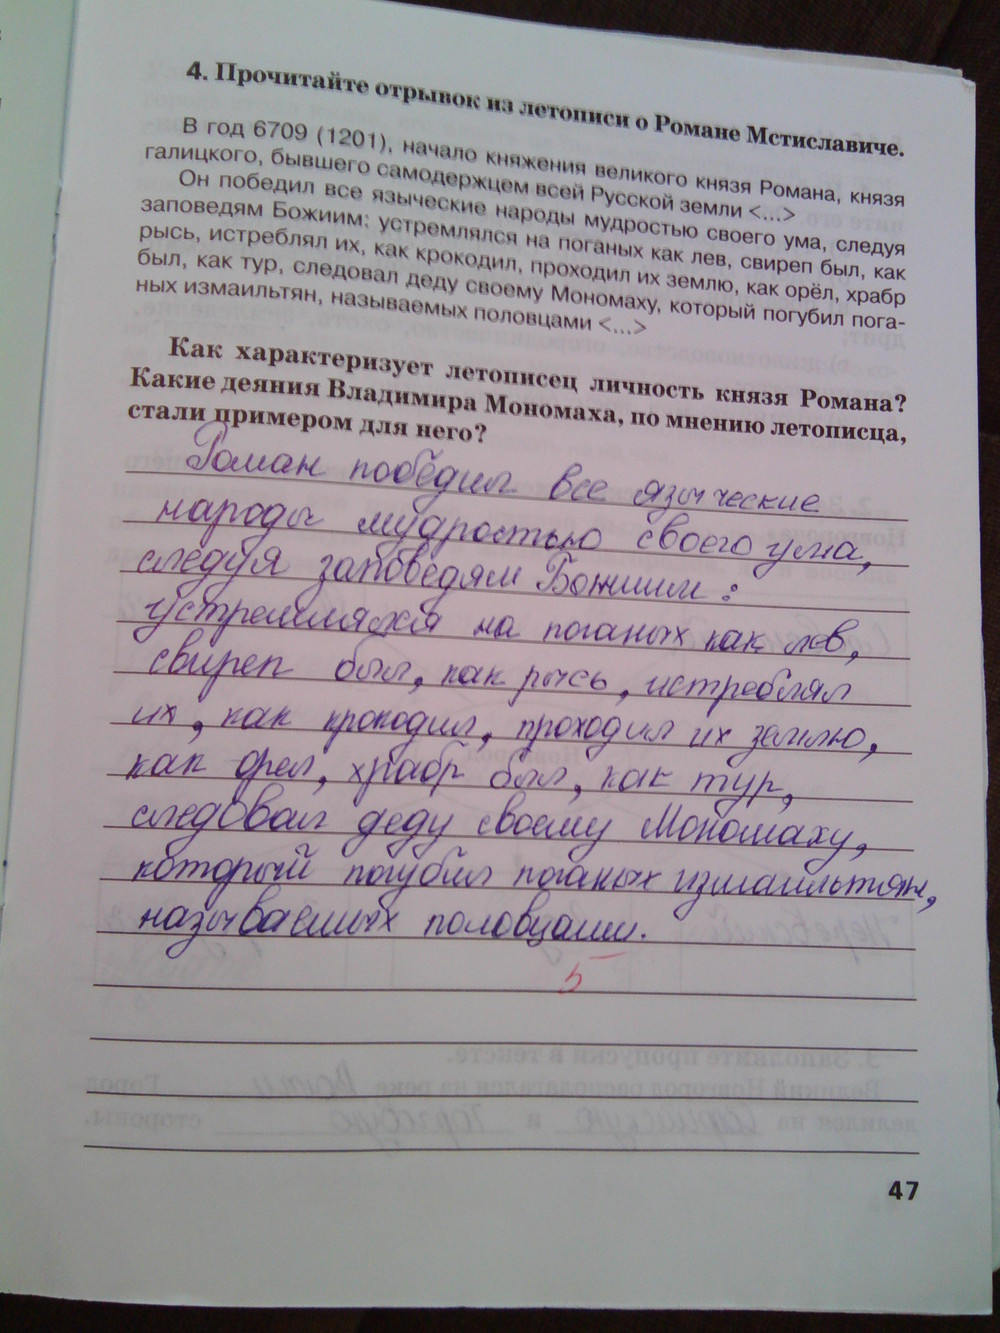 4. Прочитайте отрывок из летописи о Романе Мстиславиче.
В год 6709 (1201), начало княжения великого князя Романа, князя
галицкого, бывшего самодержцем всей Русской земли <...>
Он победил все языческие народы мудростью своего ума, следуя
заповедям Божиим: устремлялся на поганых как лев, свиреп был, как
рысь, истреблял их, как крокодил, проходил их землю, как орёл, храбр
был, как тур, следовал деду своему Мономаху, который погубил пога-
ных измаильтян, называемых половцами <...>
Как характеризует летописец личность князя Романа?
Какие деяния Владимира Мономаха, по мнению летописца,
стали примером для него?
Роман победил все языческие
народы мудростью своего ума,
следуя заповедям Божиим:
устремлялся на поганых как лев,
свиреп был, как рысь, истреблял
их, как крокодил, проходил их землю,
как орел, храбр был, как тур,
следовал деду своему Мономаху,
который погубил поганых измаильтян,
называемых половцами.
5
47